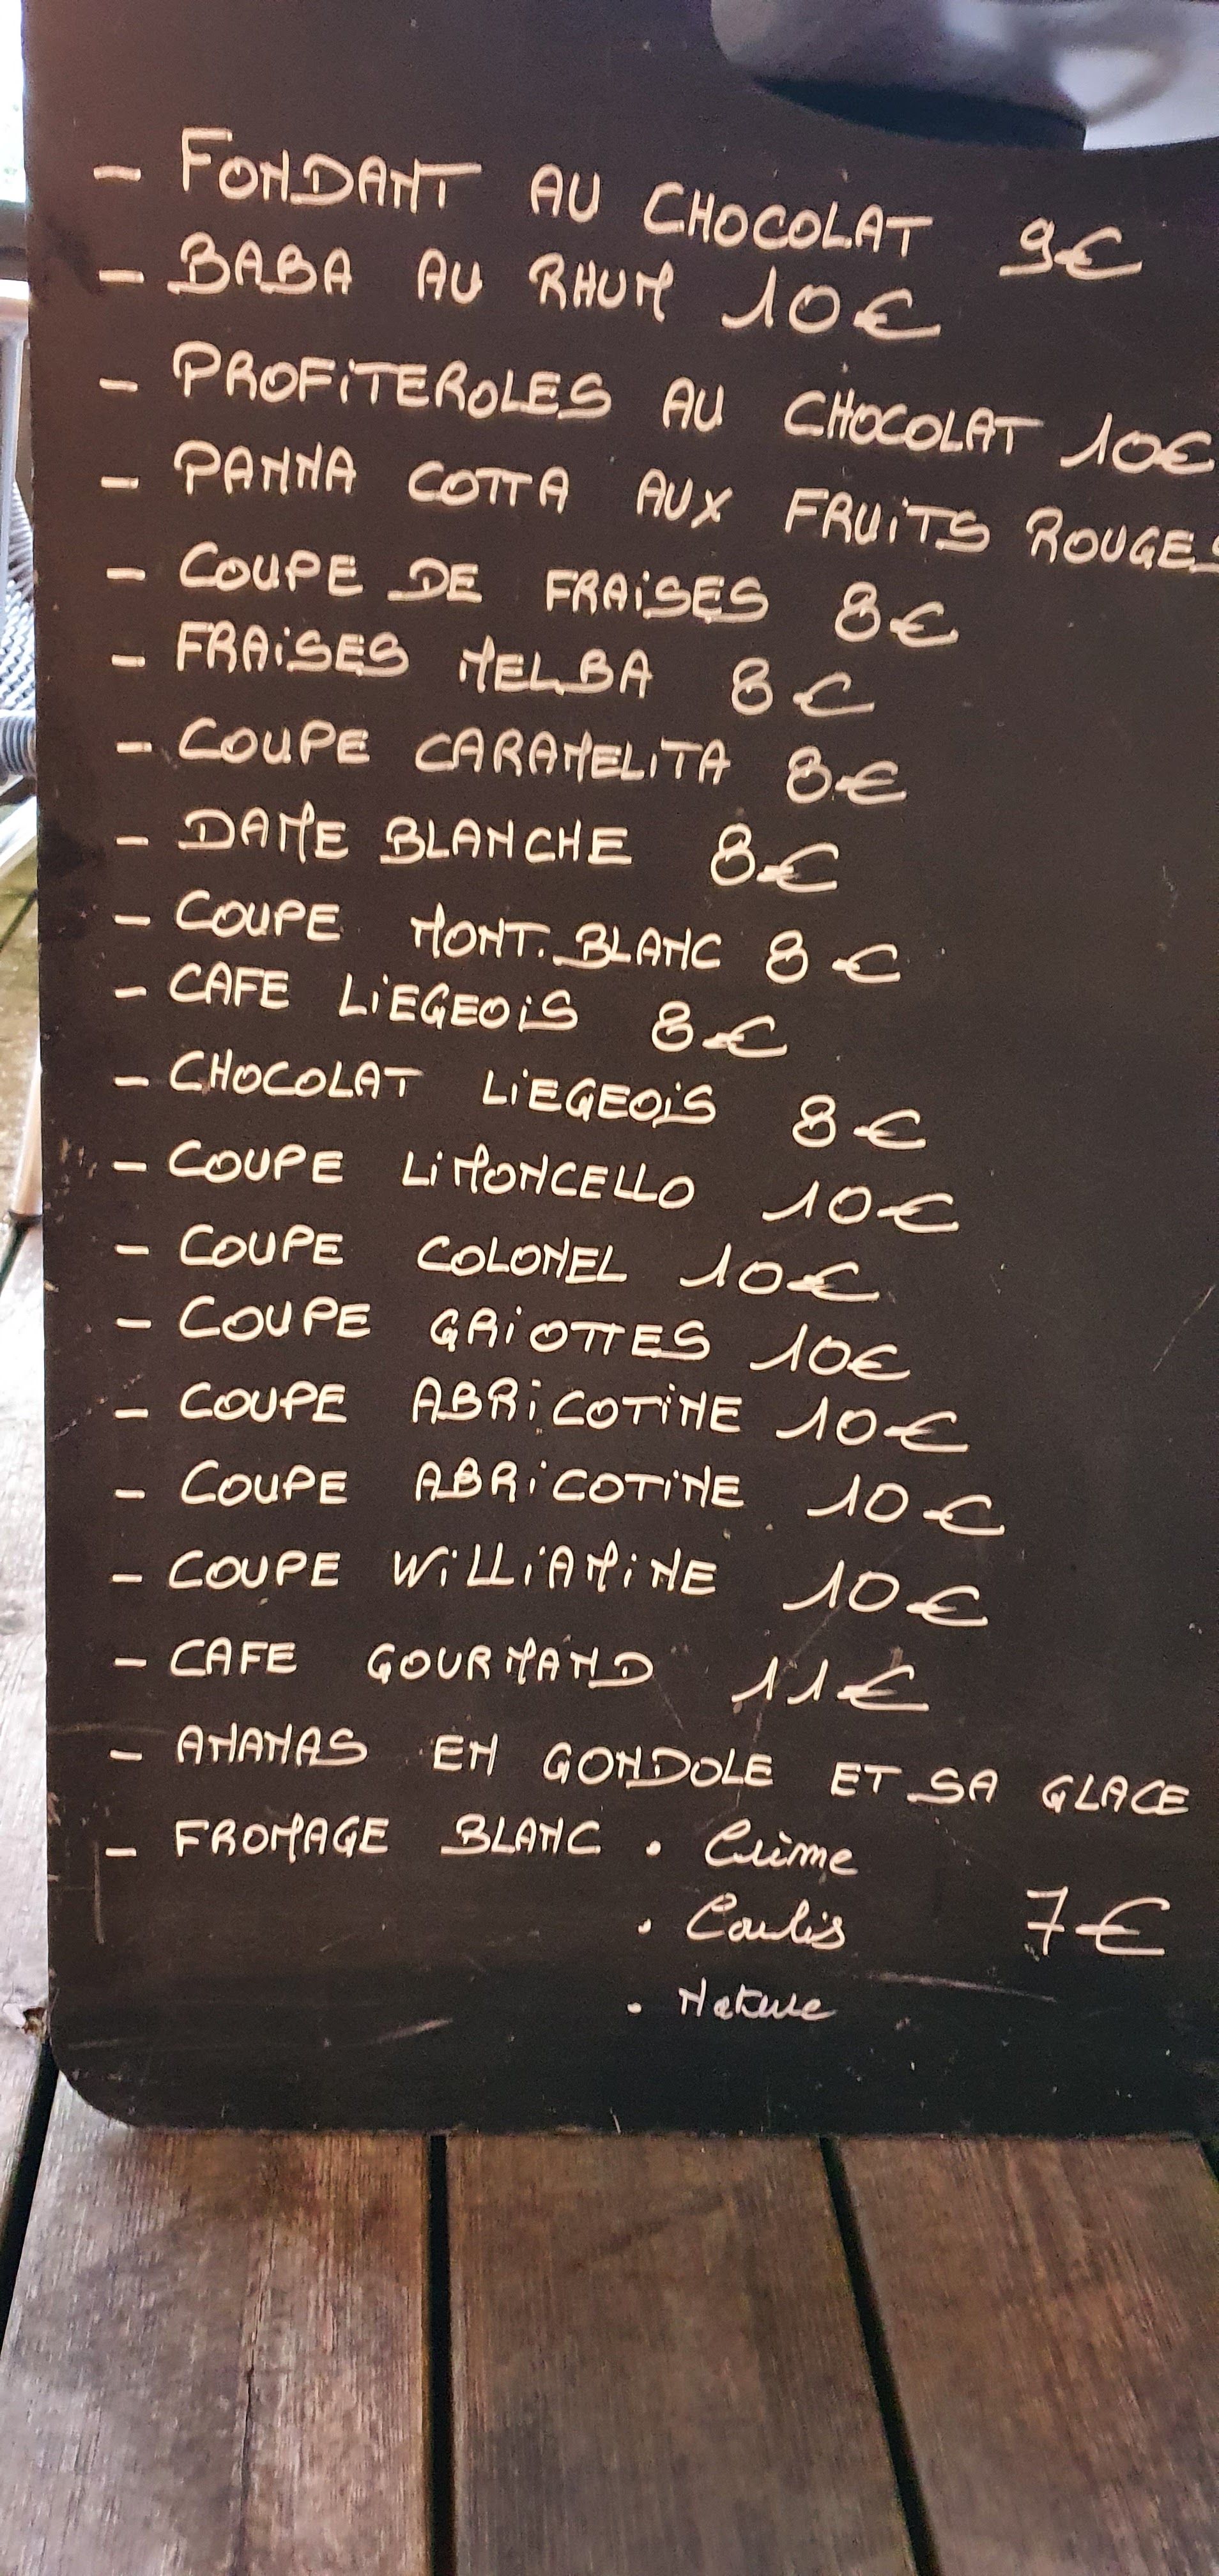 - FONDANT AU CHOCOLAT 9€
- BABA AU RHUM 10€
- PROFiTEROLES AU CHOCOLAT 10€
- PANNA COTTA AUX FRUiTS ROUGES
- COUPE DE FRAiSES 8€
- FRAiSES MELBA 8€
- COUPE CARAMELiTA 8€
- DAME BLANCHE 8€
- COUPE MONT.BLANC 8€
- CAFE LiEGEOiS 8€
- CHOCOLAT LiEGEOiS 8€
- COUPE LiMONCELLO 10€
- COUPE COLONEL 10€
- COUPE GRiOTTES 10€
- COUPE ABRiCOTiNE 10€
- COUPE ABRiCOTiNE 10€
- COUPE WiLLiAMiNE 10€
- CAFE GOURMAND 11€
- ANANAS EN GONDOLE ET SA GLACE
- FROMAGE BLANC . Crème
. Coulis 7€
. Nature